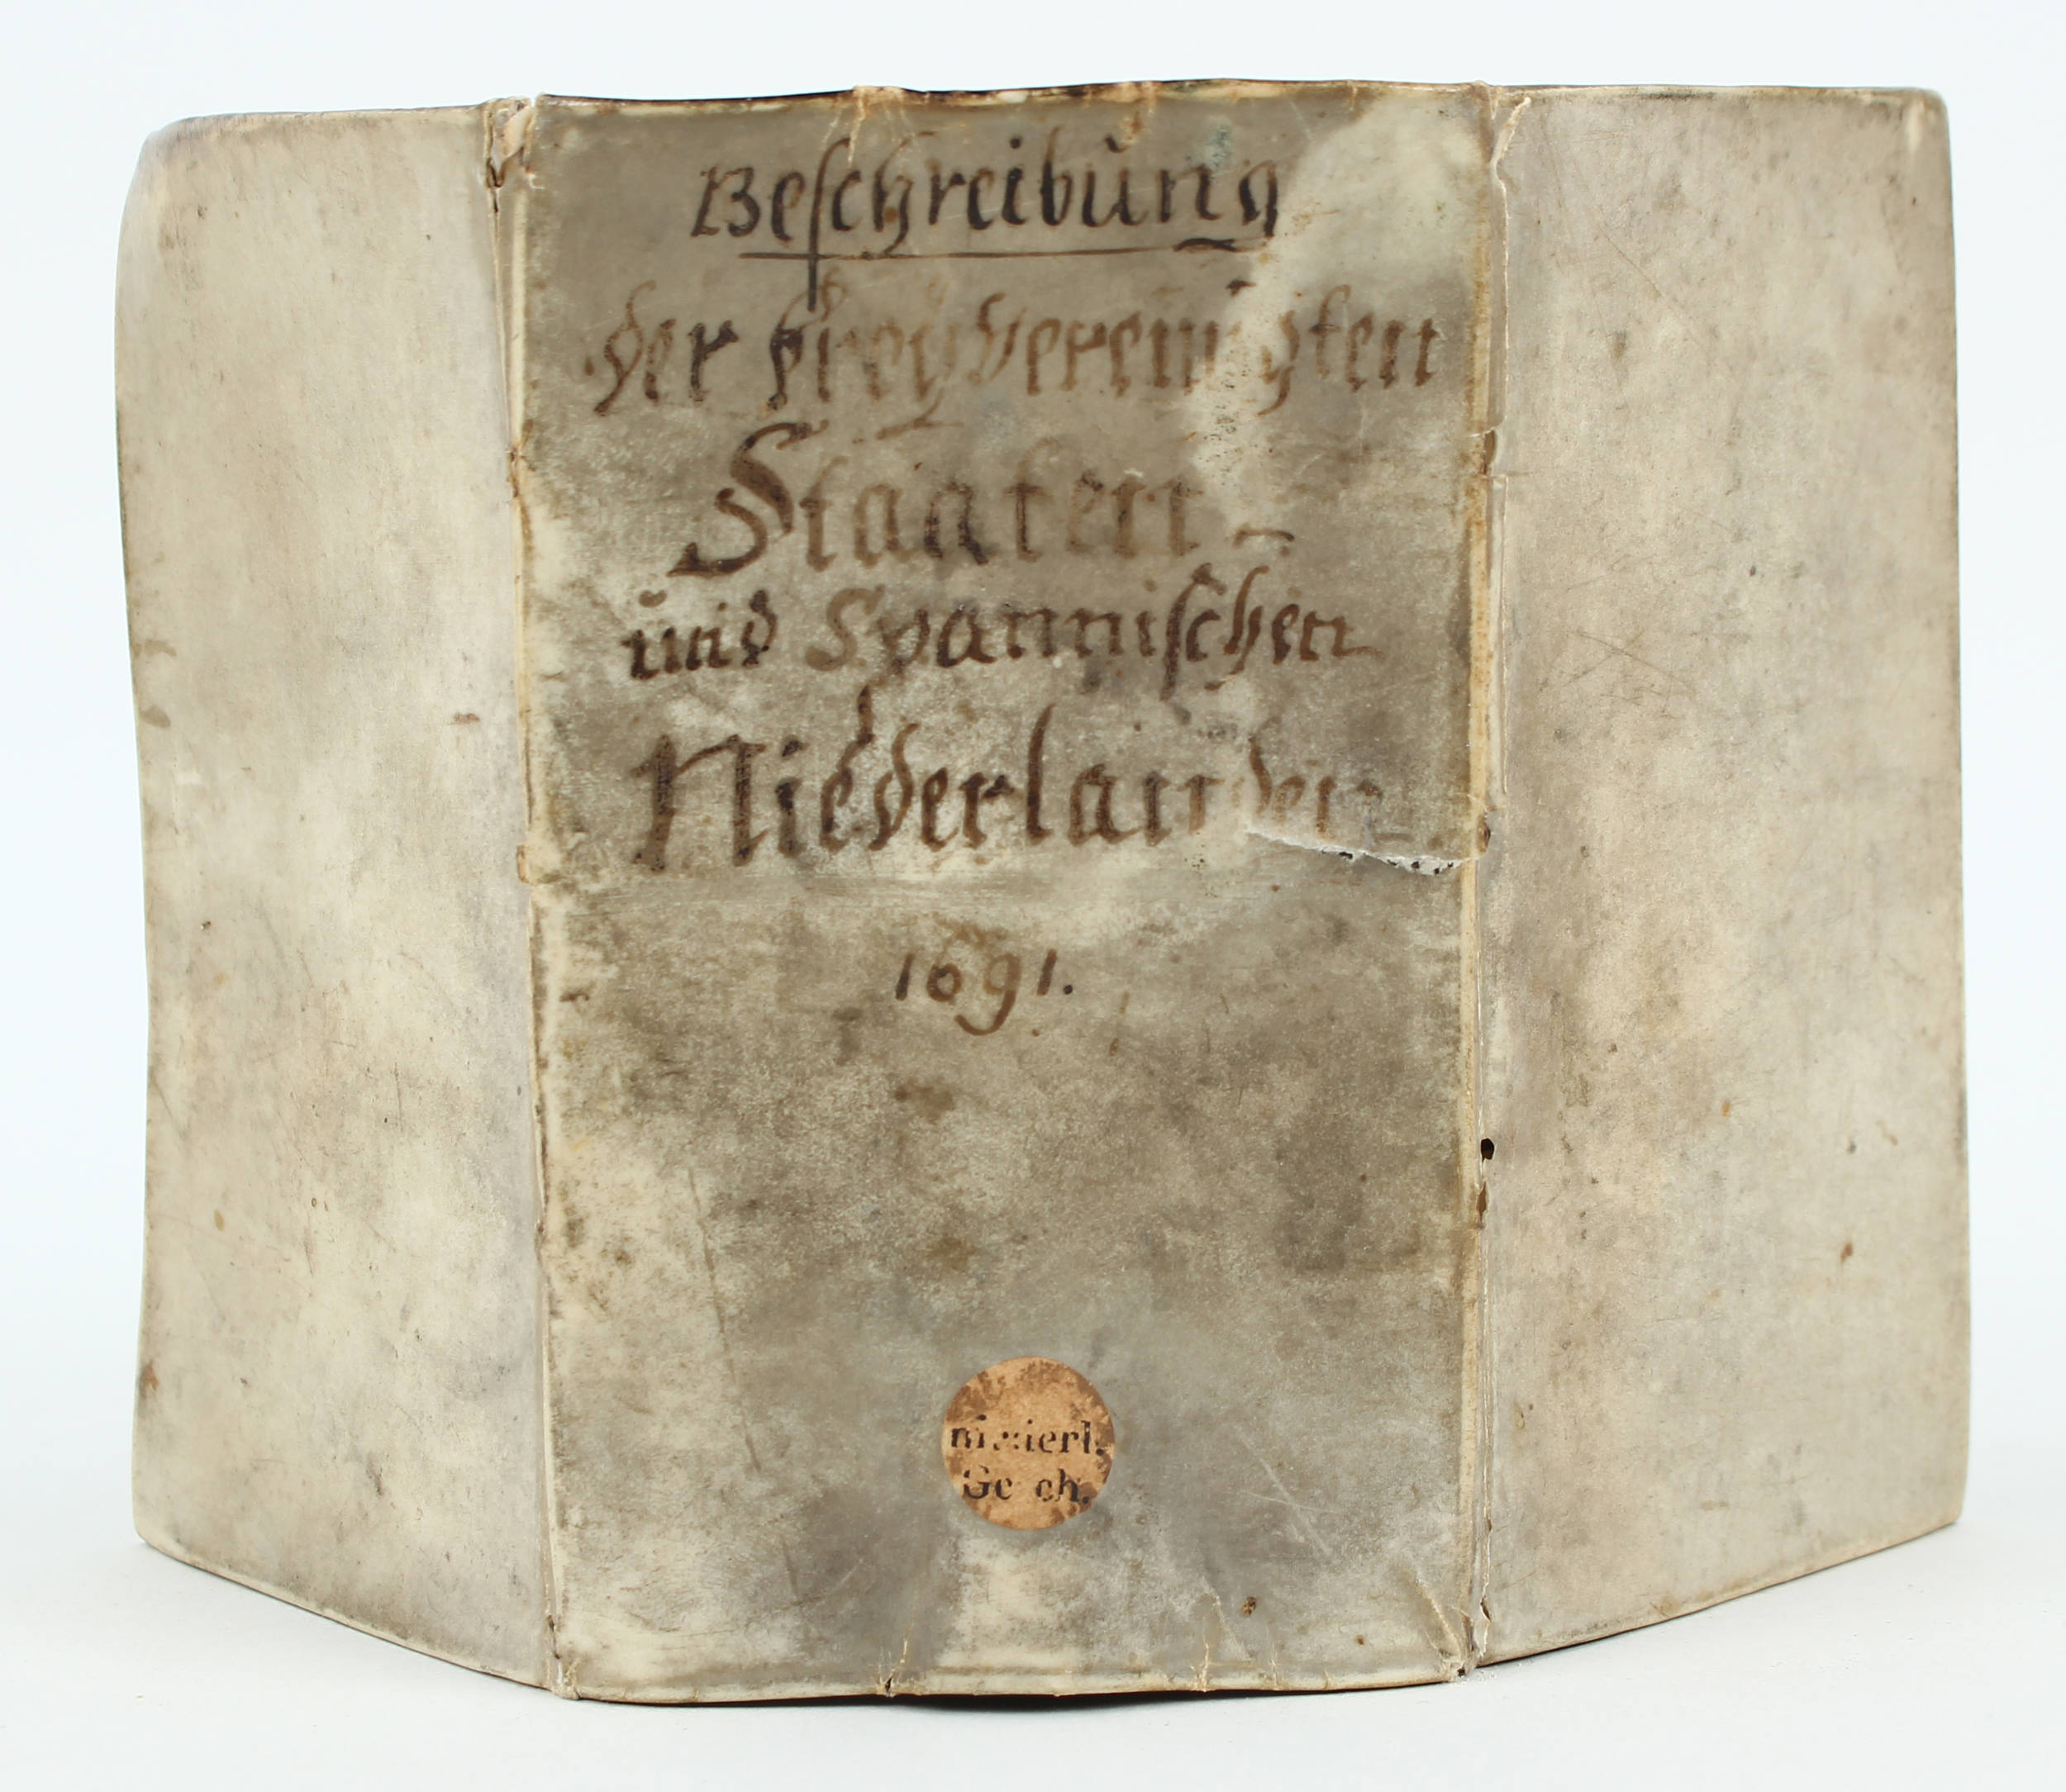 Beschreibung
der freyvereinigten
Staaten
und Spannischen
Niederlanden
1691.